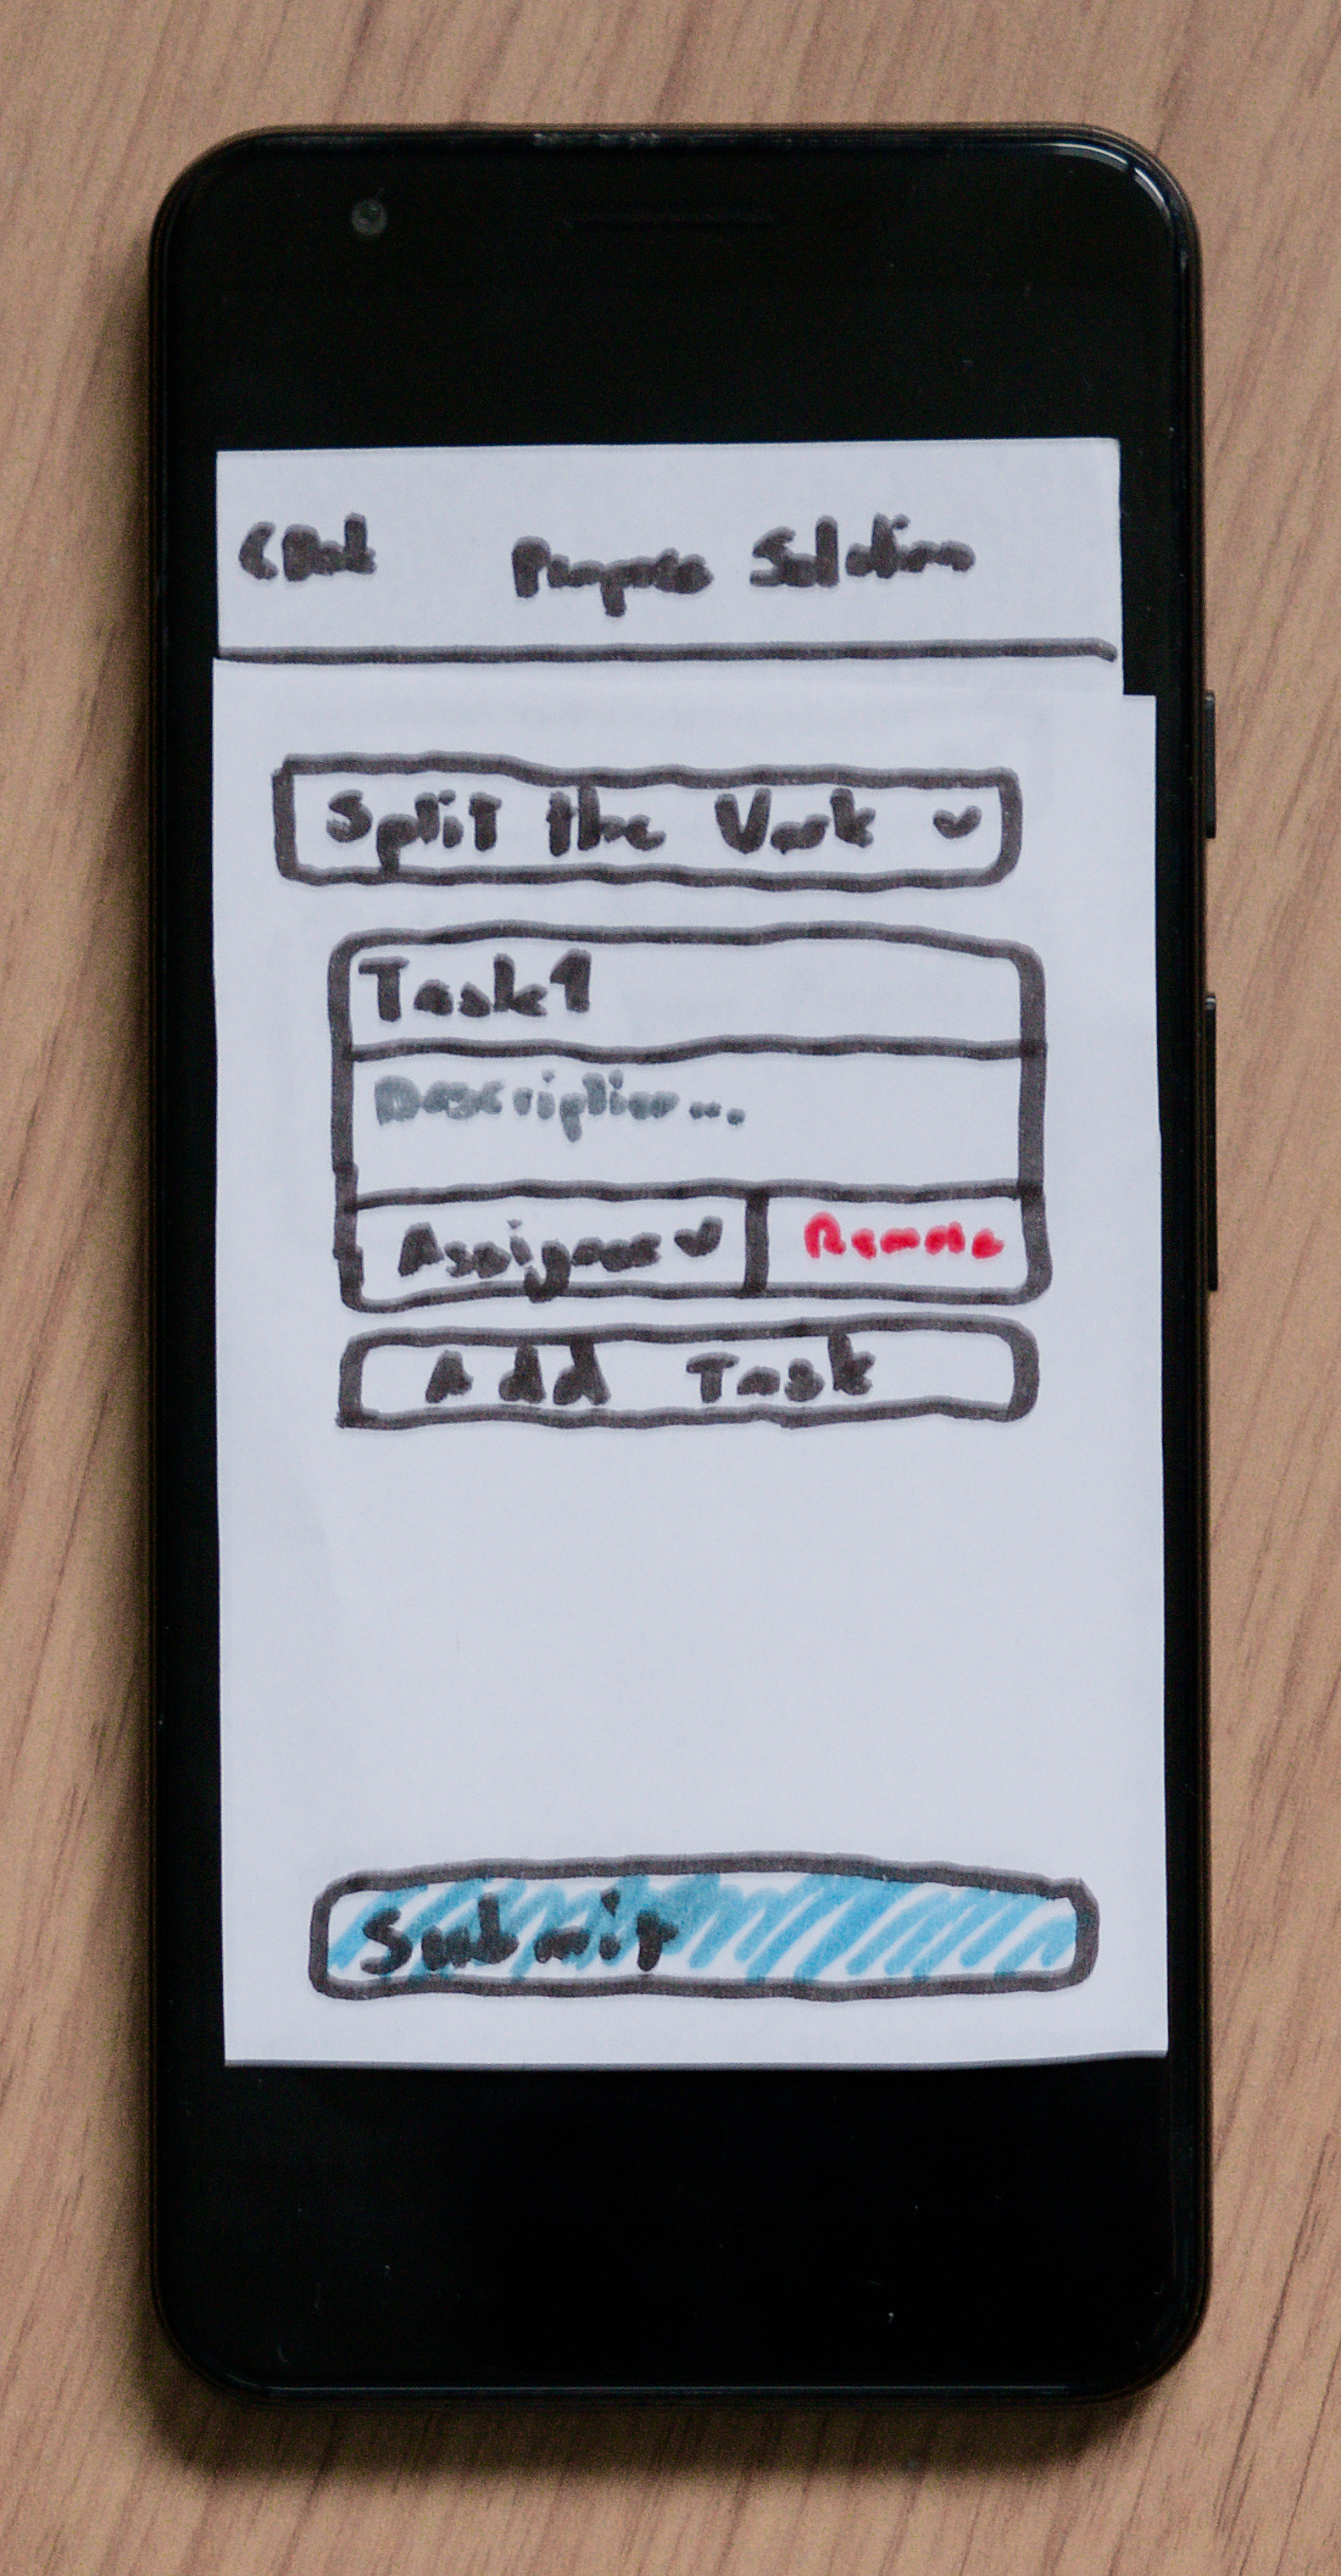 < Back Propose Solution
Split the Work
Task 1
Description...
Assignee Remove
Add Task
Submit